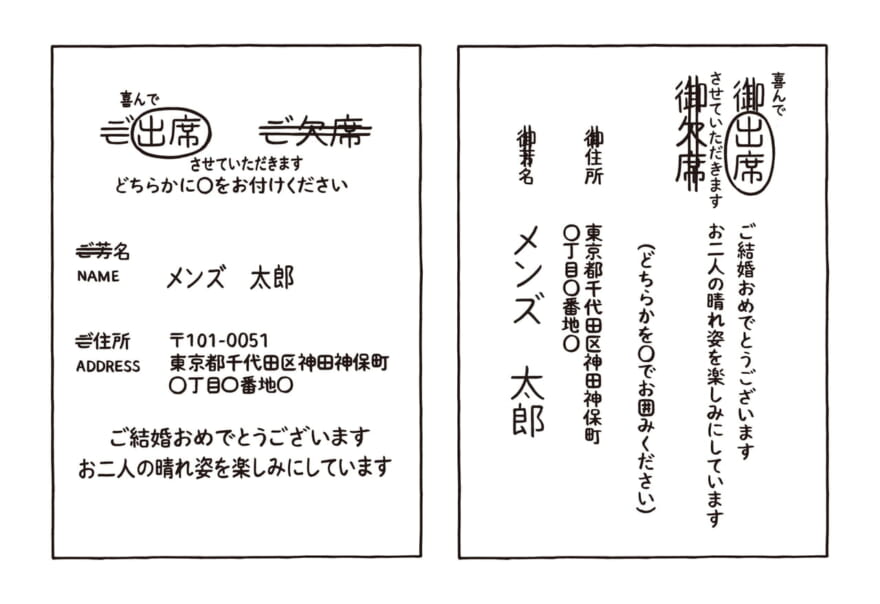 喜んで
ご出席 ご欠席
させていただきます
どちらかに〇をお付けください
ご芳名
NAME
メンズ 太郎
ご住所
ADDRESS
〒101-0051
東京都千代田区神田神保町
〇丁目〇番地〇
ご結婚おめでとうございます
お二人の晴れ姿を楽しみにしています
喜んで
御出席
させていただきます
御欠席
ご結婚おめでとうございます
お二人の晴れ姿を楽しみにしています
(どちらかを〇でお囲みください)
御住所
東京都千代田区神田神保町
〇丁目〇番地〇
御芳名
メンズ 太郎